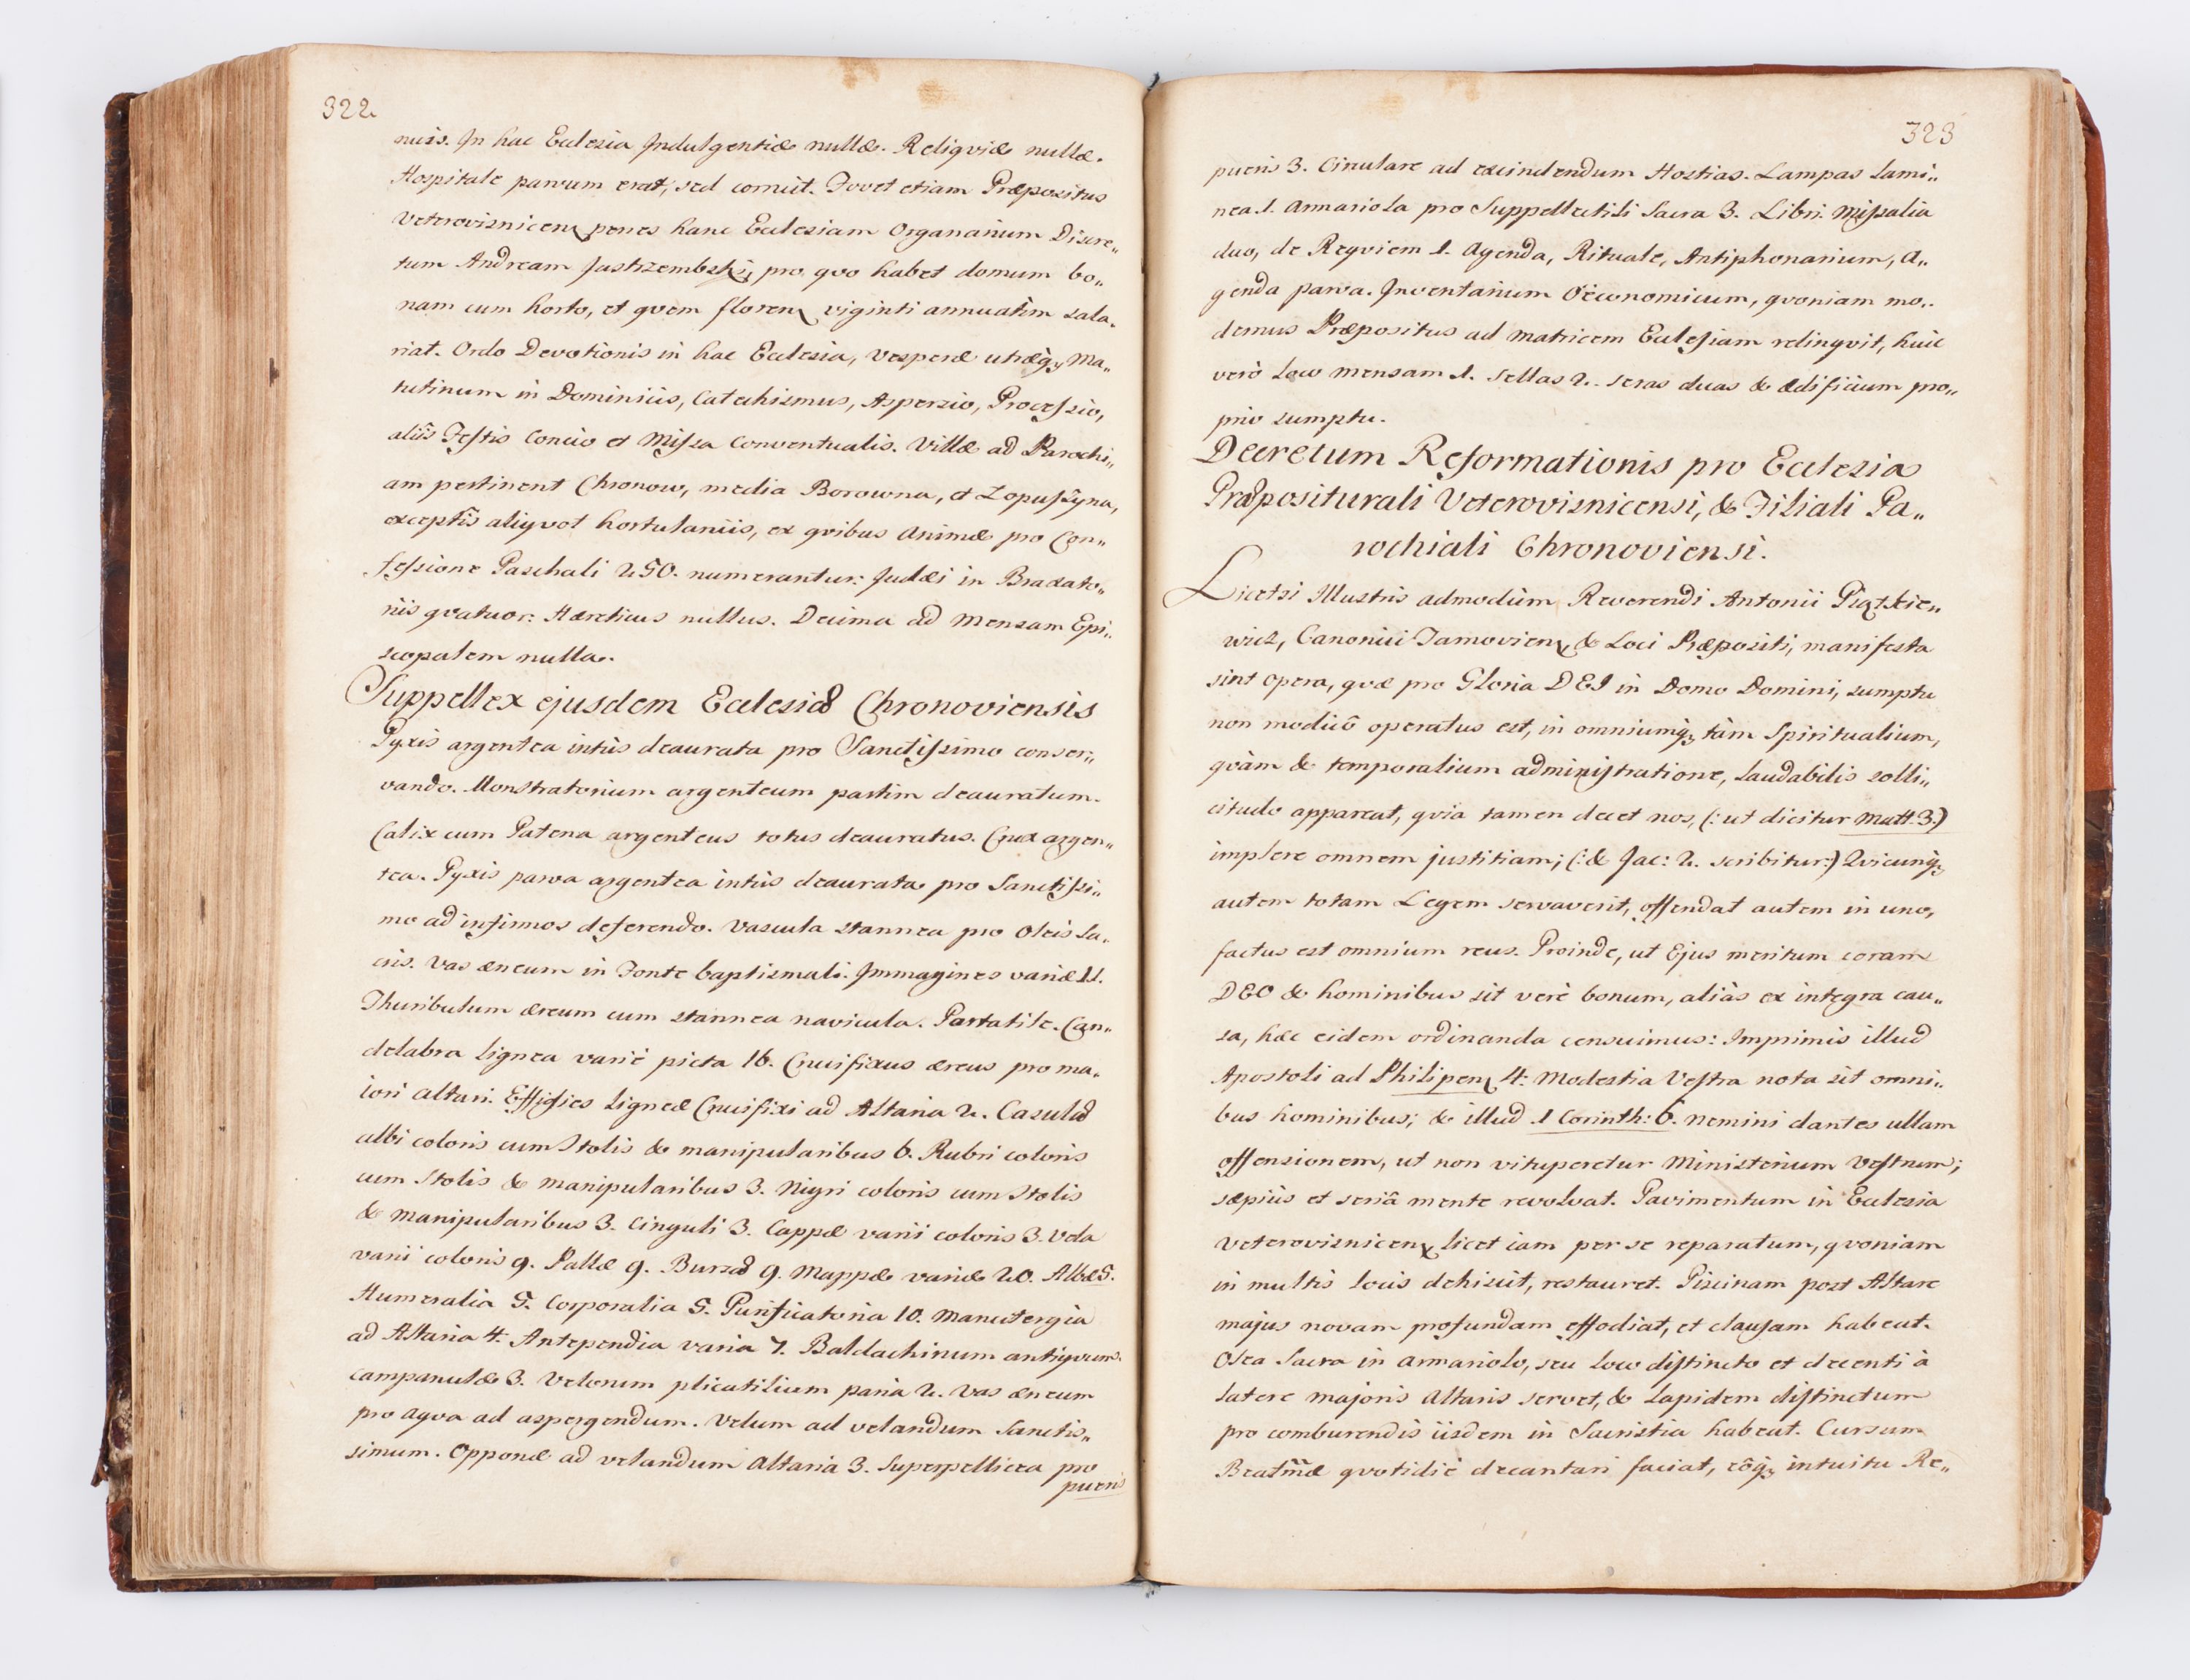 322.
nuis. In hac Ecclesia Indulgentiæ nullæ. Reliqviæ nullæ.
Hospitale parvum erat, sed corruit. Fovet etiam Præpositus
Veterovisnicens penes hanc Ecclesiam Organarium Discre„
tum Andream Jastrzembski, pro qvo habet domum bo„
nam cum horto, et qvem floren viginti annuatim sala„
riat. Ordo Devotionis in hac Ecclesia, Vesperæ utræq; Ma„
tutinum in Dominicis, Catechizmus, Aspersio, Processio,
aliis Festis Concio et Missa Conventualis. Villæ ad Parochi„
am pertinent Chronow, media Borowna, et Lopuszyna,
exceptis aliqvot hortulaniis, ex qvibus Animæ pro Con„
fessione Paschali 250. numerantur: Judæi in Braxato„
riis qvatuor: Hæreticus nullus. Decima ad Mensam Epi„
scopalem nulla.
Suppellex ejusdem Ecclesiæ Chronoviensis
Pyxis argentea intùs deaurata pro Sanctissimo conser„
vando. Monstratorium argenteum partim deauratum.
Calix cum Patena argenteus totus deauratus. Crux argen„
tea. Pyxis parva argentea intùs deaurata pro Sanctissi„
mo ad infirmos deferendo. Vascula stannea pro Oleis Sa„
cris. Vas æneum in Fonte baptismali. Immagines variæ 11.
Thuribulum æreum cum stannea navicula. Portatile. Can„
delabra lignea variè picta 16. Crucifixus æreus pro ma„
iori altari. Effigies ligneæ Crucifixi ad Altaria 2. Casulæ
albi coloris cum Stolis & manipularibus 6. Rubri coloris
cum Stolis & manipularibus 3. Nigri coloris cum Stolis
& manipularibus 3. Cinguli 3. Cappæ varii coloris 3. Vela
varii coloris 9. Pallæ 9. Bursæ 9. Mappæ variæ 20. Albæ 5.
Humeralia 5. Corporalia 5. Purificatoria 10. Manutergia
ad Altaria 4. Antependia varia 7. Baldachinum antiqvum.
Campanulæ 3. Velorum plicatilium paria 2. Vas æneum
pro aqva ad aspergendum. Velum ad velandum Sanctis„
simum. Opponæ ad velandum Altaria 3. Superpellicea pro
pueris
323
pueris 3. Circulare ad excindendum Hostias. Lampas lami„
nea 1. Armariola pro Suppellectili Sacra 3. Libri. Missalia
duo, de Reqviem 1. Agenda, Rituale, Antiphonarium, A„
genda parva. Inventarium Oeconomicum, qvoniam mo„
dernus Præpositus ad matricem Ecclesiam relinqvit, huic
verò loco mensam 1. Sellas 2. seras duas & ædificium pro„
prio sumptu.
Decretum Reformationis pro Ecclesia
Præpositurali Veterovisnicensi, & Filiali Pa„
rochiali Chronoviensi.
Licetsi Illustris admodùm Reverendi Antonii Piątkie„
wicz, Canonici Tarnovien, & Loci Præpositi, manifesta
sint opera, qvæ pro Gloria DEI in Domo Domini, sumptu
non modicô operatus est, in omniumq; tàm Spiritualium,
qvàm & temporalium administratione, laudabilis solli„
citudo appareat, qvia tamen decet nos, (: ut dicitur Matt. 3:)
implere omnem justitiam; (: & Jac: 2. scribitur:) Qvicunq;
autem totam Legem servaverit, offendat autem in uno,
factus est omnium reus. Proinde, ut Ejus meritum coram
DEO & hominibus sit verè bonum, aliàs ex integra cau„
sa, hæc eidem ordinanda censuimus: Imprimis illud
Apostoli ad Philipen 4: Modestia Vestra nota sit omni„
bus hominibus; & illud 1 Corinth: 6. nemini dantes ullam
offensionem, ut non vituperetur Ministerium Vestrum;
sæpiùs et seriâ mente revolvat. Pavimentum in Ecclesia
Veterovisnicen licet iam per se reparatum, qvoniam
in multis locis dehiscit, restauret. Piscinam post Altare
majus novam profundam effodiat, et clausam habeat.
Olea Sacra in armariolo, seu loco distincto et decenti à
latere majoris Altaris servet, & lapidem distinctum
pro comburendis iisdem in Sacristia habeat. Cursum
Beatmæ qvotidiè decantari faciat, eôq; intuitu Re„